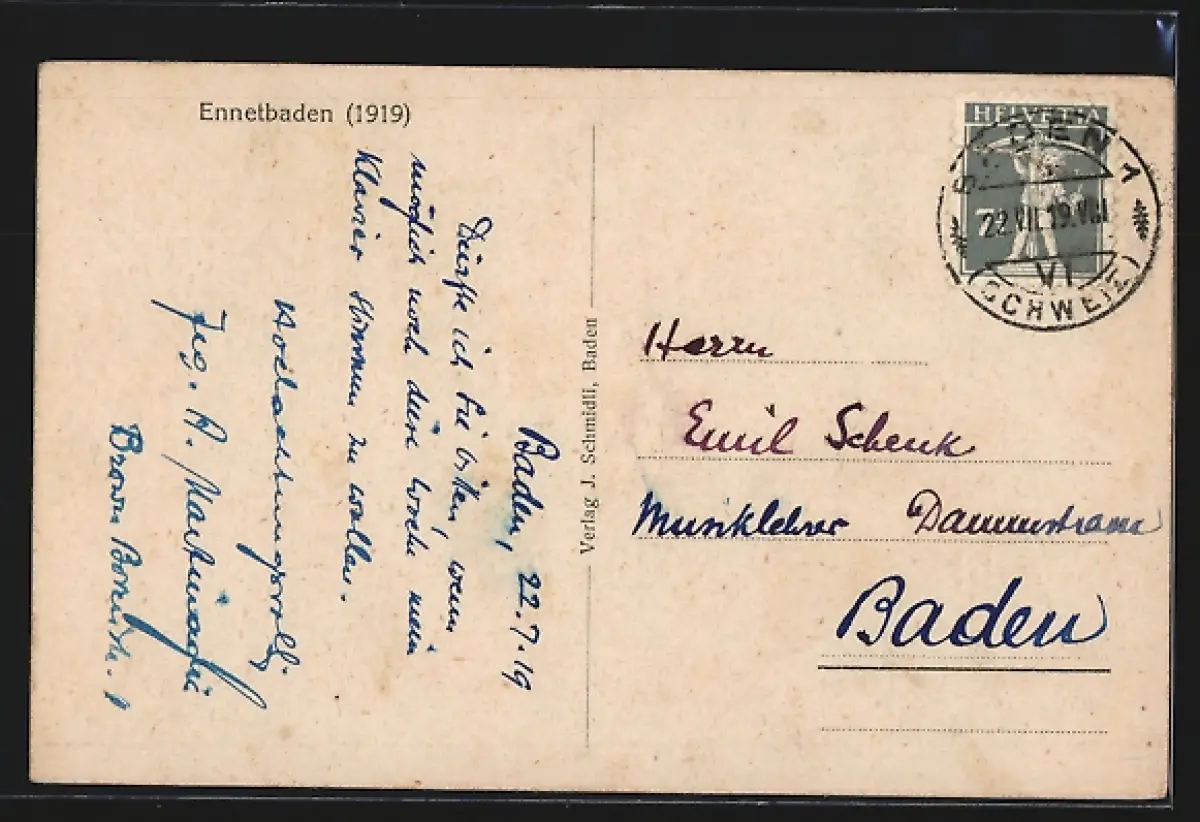 Ennetbaden (1919)
Baden, 22.7.19
Dürfte ich Sie bitten, wenn
möglich noch diese Woche mein
Klavier stimmen zu wollen.
Hochachtungsvoll
Jng. A.
Brown Boveristr.
Verlag J. Schmidli, Baden
HELVETIA
7
BADEN 1
22.VII.19.VIII
VI
(SCHWEIZ)
Herrn
Emil Schenk
Musiklehrer Dammstrasse
Baden